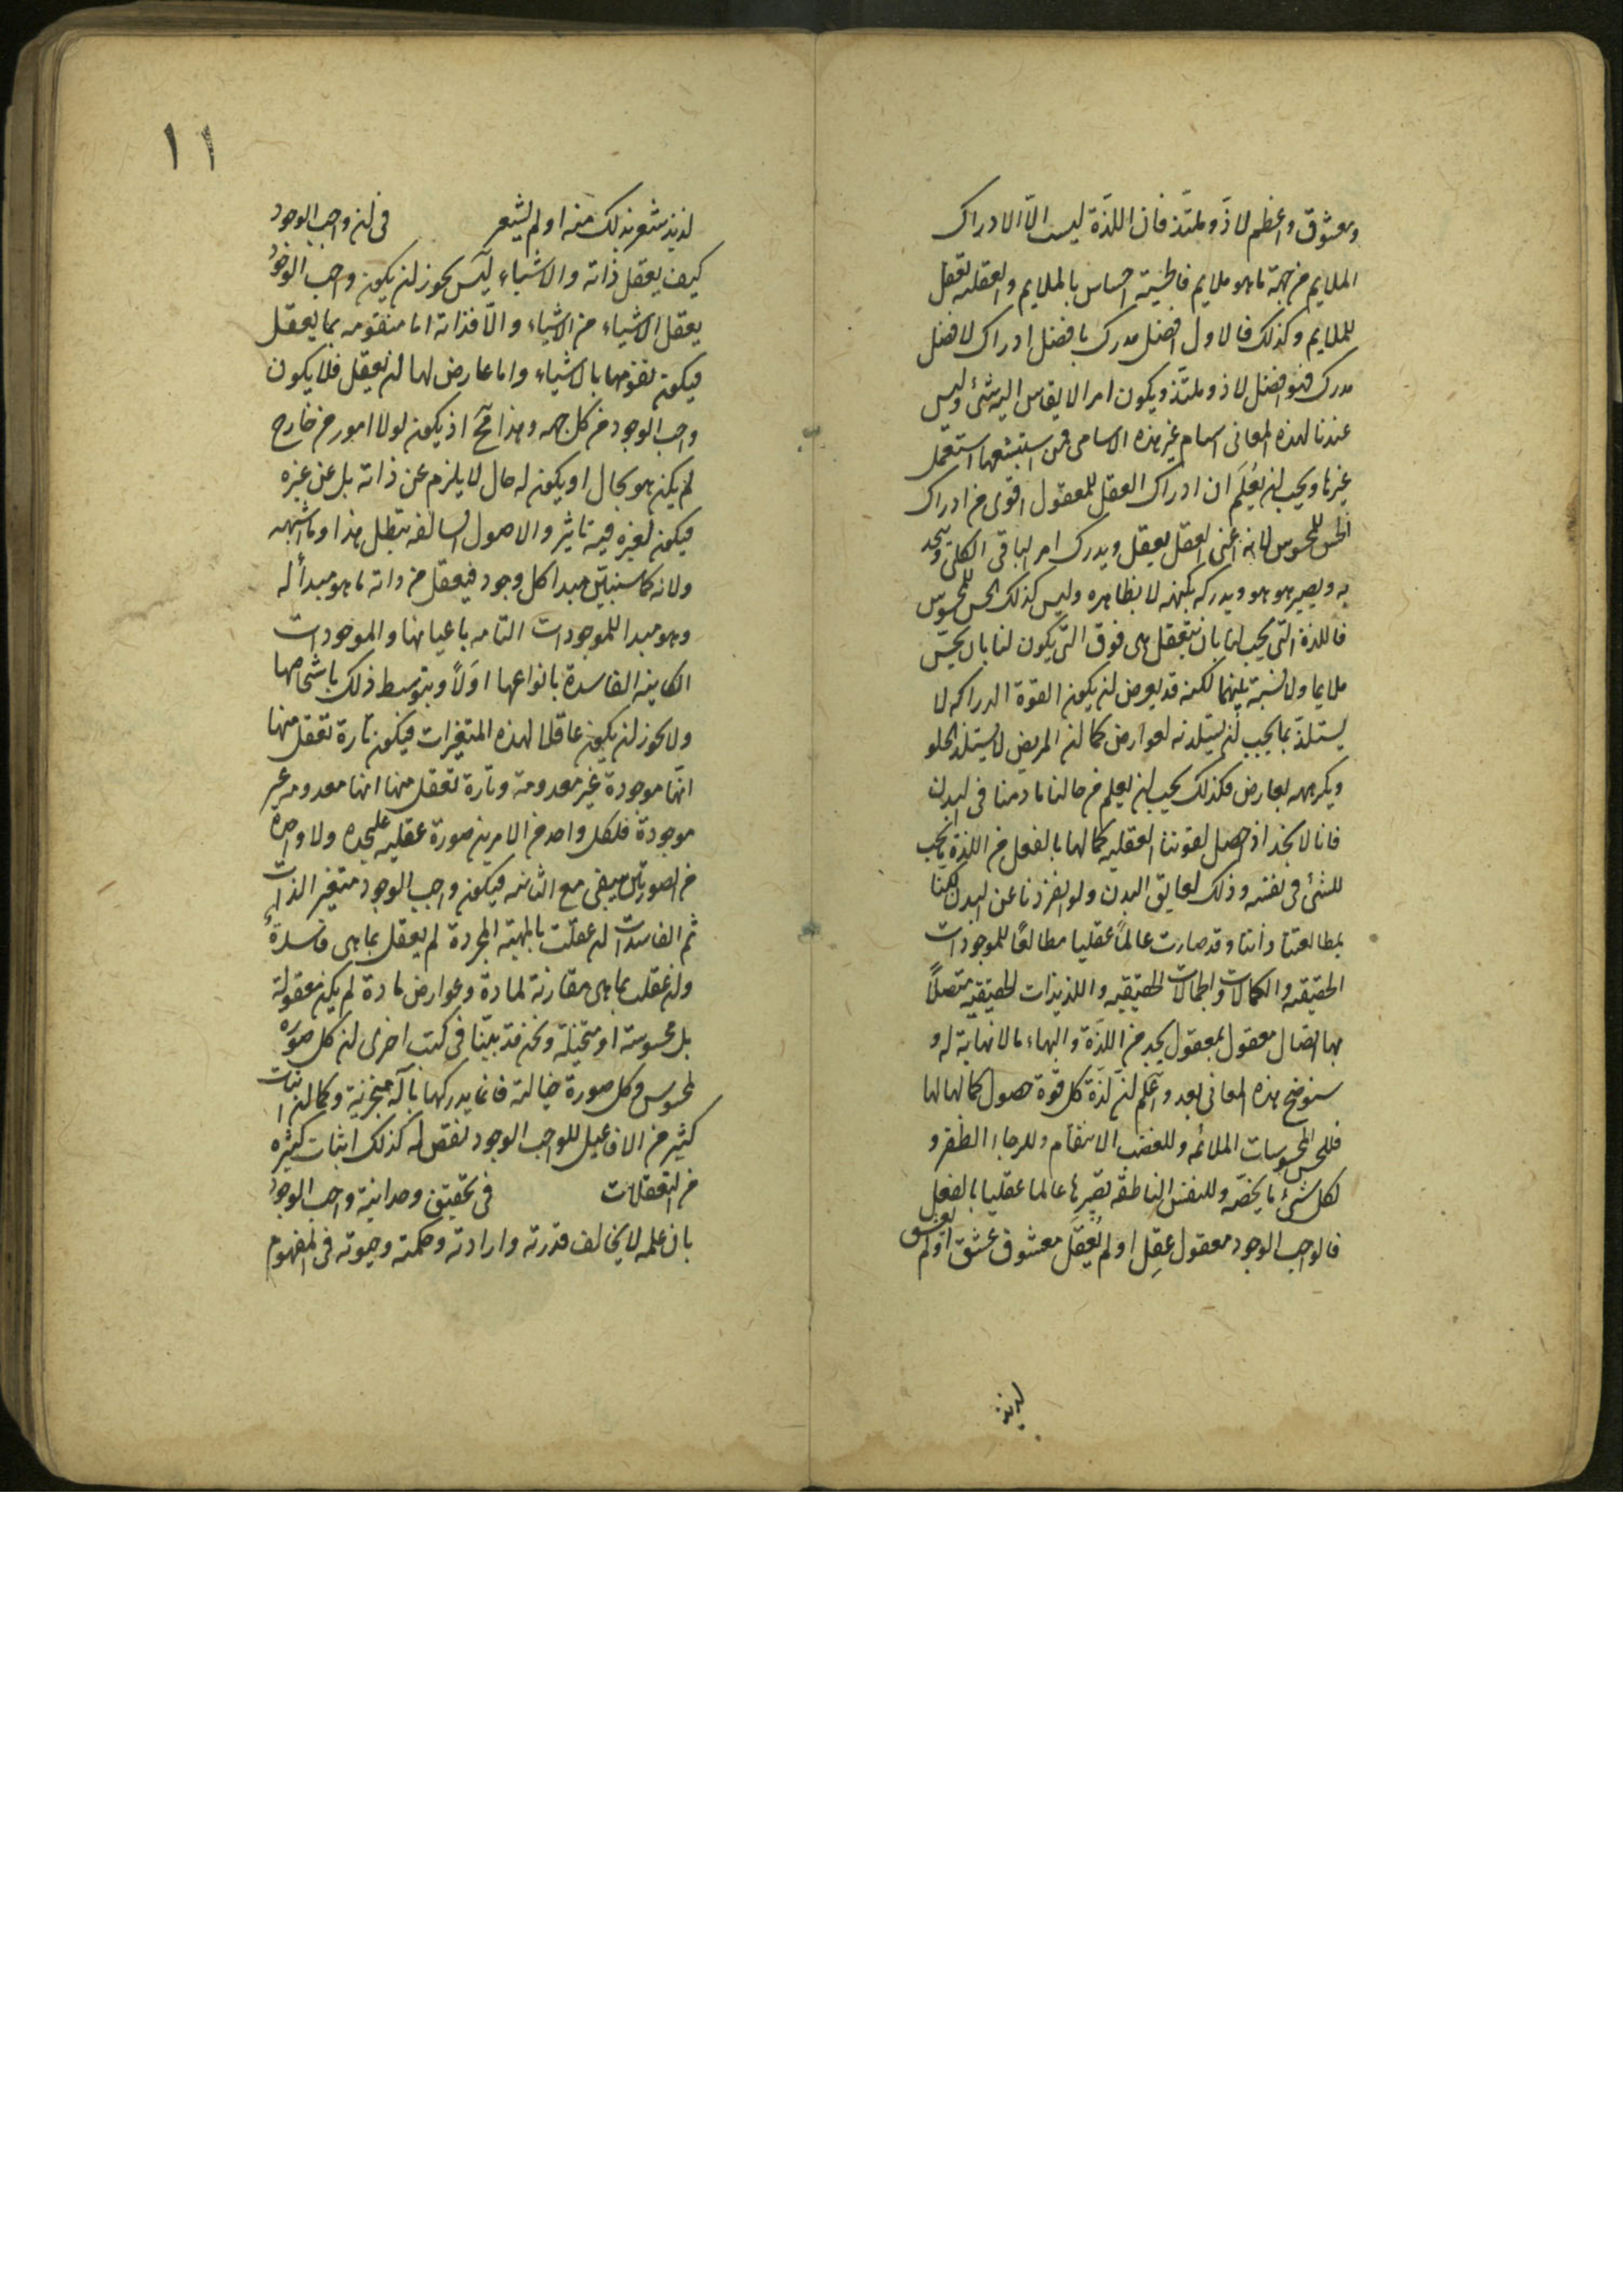 ومعشوق واعظم لاذّ وملتذّ فان اللذّة ليست الّا الادراك
الملايم من جهة ما هو ملايم فالحسّية احساس بالملايم والعقليه تعقل
للملايم وكذلك فالاول افضل مدرك بافضل ادراك لافضل
مدرك فهو افضل لاذ وملتذّ ويكون امرا لا يقاس اليه شئ وليس
عندنا لهذه المعانى اسام غير هذه الاسامى فمن استبشعها استعمل
غيرها ويجب ان يُعلَم ان ادراك العقل للمعقول اقوى من ادراك
الحس للمحسوس لانه اعنى العقل يعقل ويدرك امر الباقى الكلى ويتحد
به ويصير هو هو ويدركه بكنهه لا بظاهره وليس كذلك الحس للمحسوس
فاللذة التى يجب لنا بان نتعقل هى فوق التى يكون لنا بان نحسّ
ملايما ولا نسبة بينهما لكنه قد يعرض ان يكون القوة الدراكه لا
يستلذّ بما يجب ان يستلذ به لعوارض كما ان المريض لا يستلذ الحلو
ويكرهه لعارض فكذلك يجب ان يعلم من حالنا ما دمنا فى البدن
فانا لا نجد اذا حصل لقوتنا العقليه كمالها بالفعل من اللذة ما يجب
للشئ فى نفسه وذلك لعايق البدن ولو انفردنا عن البدن لكنا
بمطالعتنا ذاتنا وقد صارت عالماً عقليا مطالعًا للموجودات
الحقيقيه والكمالات والجمالات الحقيقيه واللذيذات الحقيقيه متصلاً
بها اتصال معقول بمعقول يجد من اللذّة والبهاء ما لا نهاية له و
سنوضح هذه المعانى بعد واعلم ان لذّة كل قوّة حصول كمالها لها
فللحس المحسوسات الملائمه وللغضب الانتقام وللرجاء الظفر و
لكل شئ ما يخصّه وللنفس الناطقه تصيرها عالما عقليا بالفعل
فالواجب الوجود معقول عقِل او لم يُعقَل معشوق عشق او لم يعشق
لذيذ
١١
لذيذ شعر بذلك منه او لم يشعر فى ان واجب الوجود
كيف يعقل ذاته والاشياء ليس يجوز ان يكون واجب الوجود
يعقل الاشياء من الاشياء والّا فذاته اما متقومه بما يعقل
فيكون تقومها بالاشياء واما عارض لها ان يعقل فلا يكون
واجب الوجود من كل جهه وهذا مح اذ يكون لولا امور من خارج
لم يكن هو بحال او يكون له حال لا يلزم عن ذاته بل عن غيره
فيكون لغيره فيه تاثير والاصول السالفه تبطل هذا وما اشبهه
ولانه كما سنبيّن مبدا كل وجود فيعقل من ذاته ما هو مبدأ له
وهو مبدا للموجودات التامه باعيانها والموجودات
الكاينه الفاسدة بانواعها اوّلاً وبتوسط ذلك باشخاصها
ولا يجوز ان يكون عاقلا لهذه المتغيرات فيكون تارة تعقل منها
انّها موجودة غير معدومة وتارة تعقل منها انها معدومه غير
موجودة فلكل واحد من الامرين صورة عقليه عليحده ولا واحدة
من الصورتين يبقى مع الثانيه فيكون واجب الوجود متغير الذات
ثم الفاسدات ان عقلت بالمهية المجردة لم يعقل بما هى فاسدة
وان عقلت بما هى مقارنة لمادة وعوارض مادة لم يكن معقولة
بل محسوسة او متخيلة ونحن قد بيّنا فى كتب اخرى ان كل صوره
لمحسوس وكل صورة خيالية فانما يدركها بآلة متجزية وكما ان اثبات
كثير من الافاعيل للواجب الوجود نقص له كذلك اثبات كثيره
من التعقلات فى تحقيق وحدانية واجب الوجود
بان علمه لا يخالف قدرته وارادته وحكمته وحيوته فى المفهوم